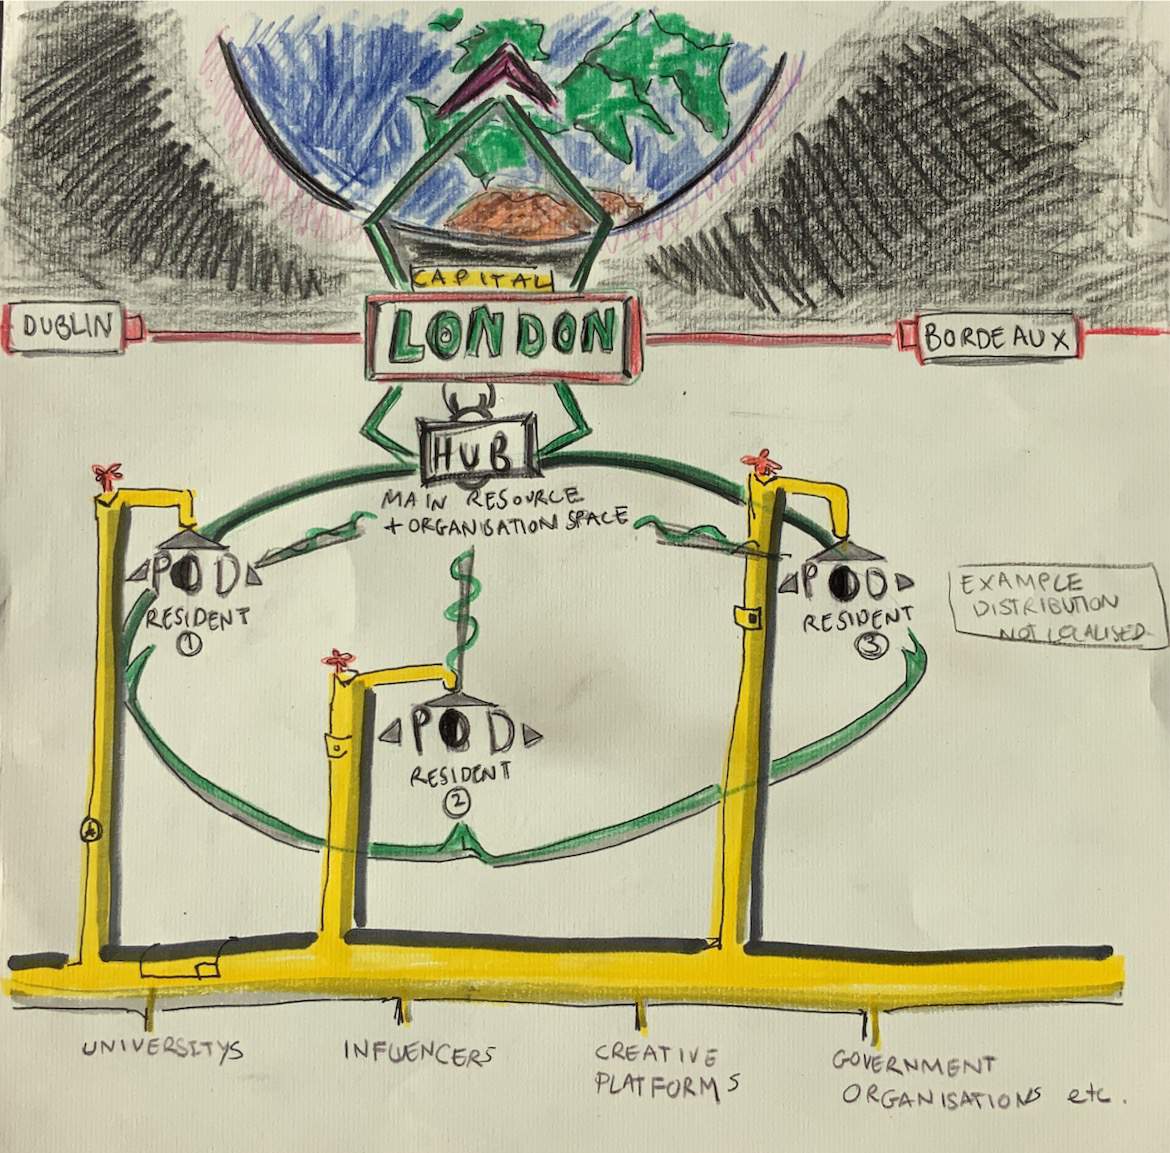 CAPITAL
DUBLIN
LONDON
BORDEAUX
HUB
MAIN RESOURCE
+ ORGANISATION SPACE
POD
RESIDENT
1
POD
RESIDENT
2
POD
RESIDENT
3
EXAMPLE
DISTRIBUTION
NOT LOCALISED
UNIVERSITYS
INFLUENCERS
CREATIVE
PLATFORMS
GOVERNMENT
ORGANISATIONS etc.